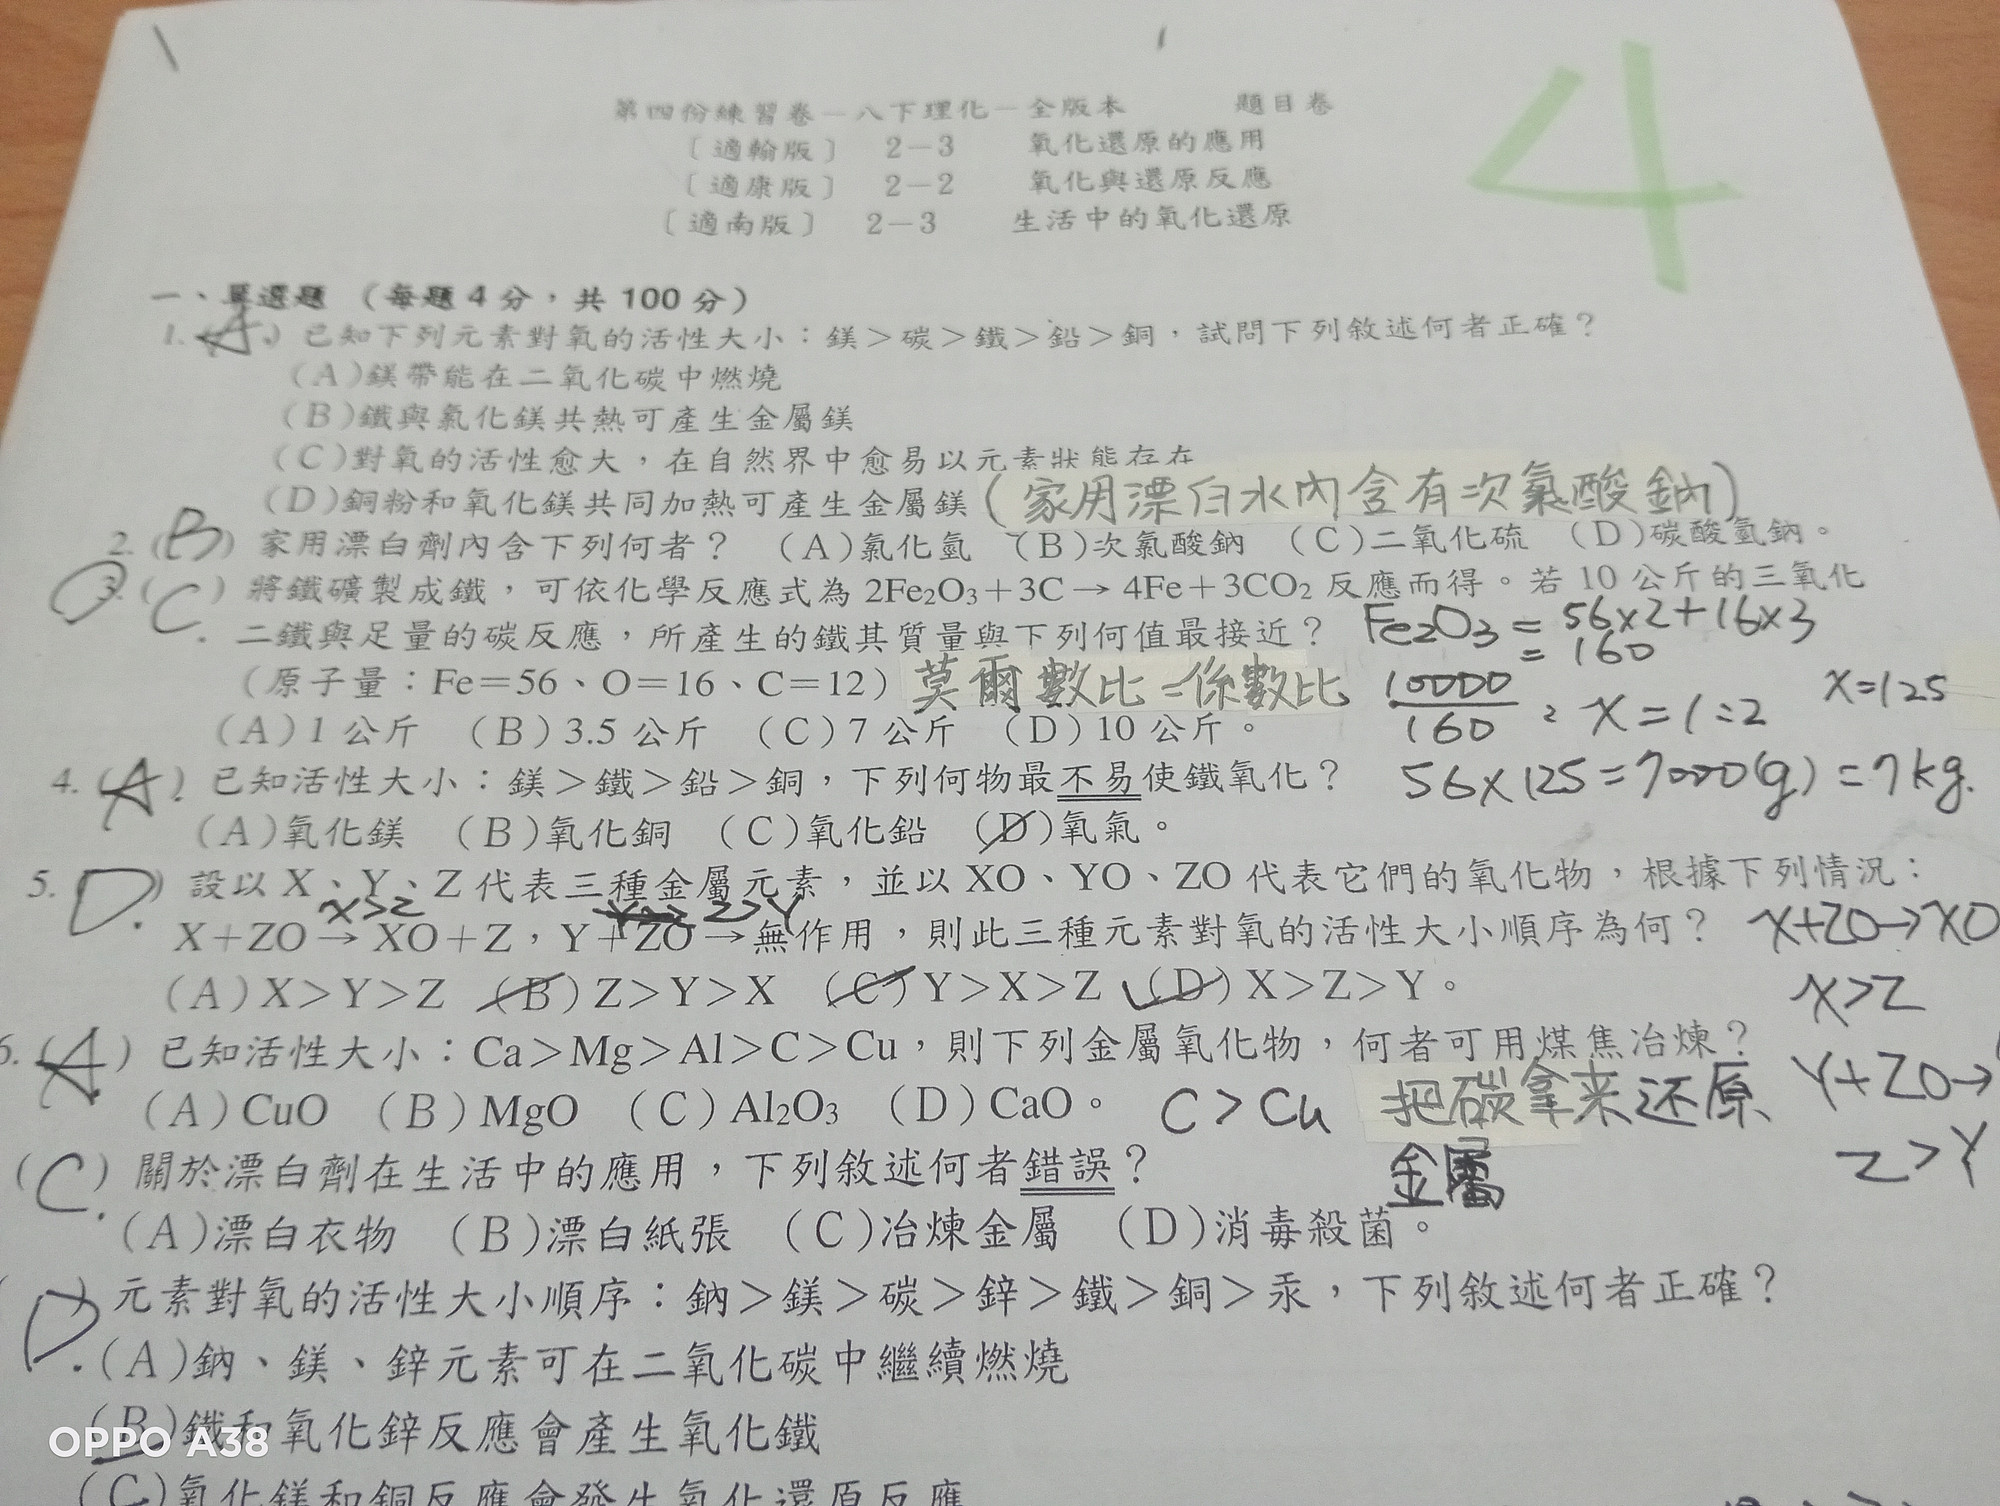 4
第四份練習卷－八下理化－全版本 題目卷
〔適翰版〕 2－3 氧化還原的應用
〔適康版〕 2－2 氧化與還原反應
〔適南版〕 2－3 生活中的氧化還原
一、單選題 （每題4分，共100分）
1.(A.) 已知下列元素對氧的活性大小：鎂＞碳＞鐵＞鉛＞銅，試問下列敘述何者正確？
(A)鎂帶能在二氧化碳中燃燒
(B)鐵與氧化鎂共熱可產生金屬鎂
(C)對氧的活性愈大，在自然界中愈易以元素狀態存在
(D)銅粉和氧化鎂共同加熱可產生金屬鎂 (家用漂白水內含有次氯酸鈉)
2.(B) 家用漂白劑內含下列何者？ (A)氯化氫 (B)次氯酸鈉 (C)二氧化硫 (D)碳酸氫鈉。
3.(C.) 將鐵礦製成鐵，可依化學反應式為 2Fe₂O₃＋3C→4Fe＋3CO₂ 反應而得。若 10 公斤的三氧化
二鐵與足量的碳反應，所產生的鐵其質量與下列何值最接近？ Fe₂O₃=56×2+16×3
=160
(原子量：Fe＝56、O＝16、C＝12) 莫爾數比=係數比 10000/160 : X=1:2 X=125
(A)1 公斤 (B)3.5 公斤 (C)7 公斤 (D)10 公斤。
56×125=7000(g)=7kg.
4.(A.) 已知活性大小：鎂＞鐵＞鉛＞銅，下列何物最不易使鐵氧化？
(A)氧化鎂 (B)氧化銅 (C)氧化鉛 (D)氧氣。
5.(D.) 設以 X、Y、Z 代表三種金屬元素，並以 XO、YO、ZO 代表它們的氧化物，根據下列情況：
X>Z Z>Y
X＋ZO→XO＋Z，Y＋ZO→無作用，則此三種元素對氧的活性大小順序為何？ X+ZO→XO
(A)X＞Y＞Z (B)Z＞Y＞X (C)Y＞X＞Z (D)X＞Z＞Y。
X>Z
6.(A) 已知活性大小：Ca＞Mg＞Al＞C＞Cu，則下列金屬氧化物，何者可用煤焦冶煉？
Y+ZO→
(A)CuO (B)MgO (C)Al₂O₃ (D)CaO。 C>Cu 把碳拿来还原
金屬
Z>Y
(C.) 關於漂白劑在生活中的應用，下列敘述何者錯誤？
(A)漂白衣物 (B)漂白紙張 (C)冶煉金屬 (D)消毒殺菌。
(D.) 元素對氧的活性大小順序：鈉＞鎂＞碳＞鋅＞鐵＞銅＞汞，下列敘述何者正確？
(A)鈉、鎂、鋅元素可在二氧化碳中繼續燃燒
(B)鐵和氧化鋅反應會產生氧化鐵
(C)氧化鎂和銅反應會發生氧化還原反應
OPPO A38